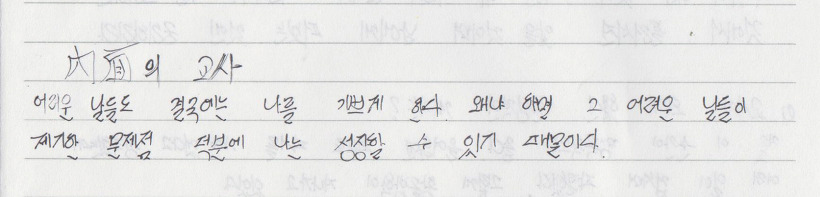 內面의 교사
어려운 날들도 결국에는 나를 기쁘게 한다 왜냐 하면 그 어려운 날들이
제기한 문제점 덕분에 나는 성장할 수 있기 때문이다.